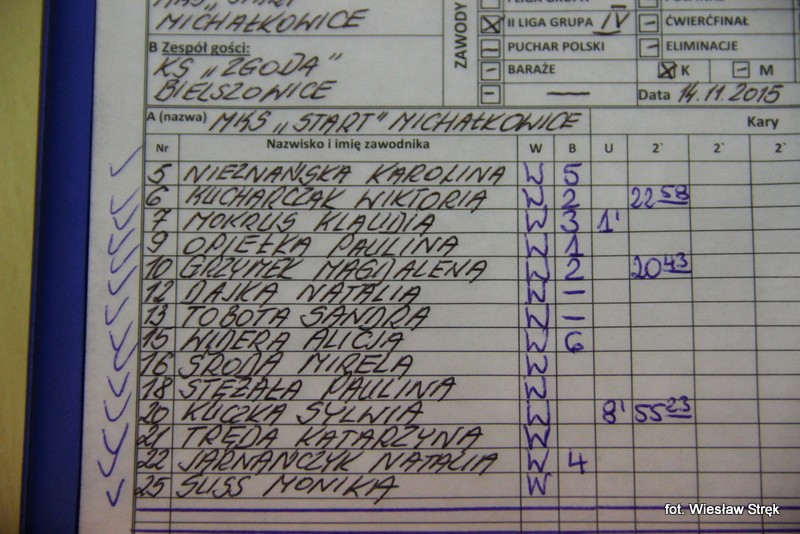 MKS „START"
MICHAŁKOWICE
B Zespół gości:
KS „ZGODA"
BIELSZOWICE
ZAWODY
II LIGA GRUPA IV
PUCHAR POLSKI
BARAŻE
ĆWIERĆFINAŁ
ELIMINACJE
K M
Data 14.11.2015
A (nazwa) MKS „START" MICHAŁKOWICE Kary
Nr Nazwisko i imię zawodnika W B U 2` 2` 2`
5 NIEZNAŃSKA KAROLINA W 5
6 KUCHARCZAK WIKTORIA W 2 22 58
7 MOKRUS KLAUDIA W 3 1'
9 OPIEŁKA PAULINA W 1
10 GRZYMEK MAGDALENA W 2 20 43
12 DAJKA NATALIA W –
13 TOBOTA SANDRA W –
15 WIDERA ALICJA W 6
16 ŚRODA MIRELA W
18 STĘŻAŁA PAULINA W
20 KUCZKA SYLWIA W 8' 55 23
21 TRĘDA KATARZYNA W
22 JARNAŃCZYK NATALIA W 4
25 SUSS MONIKA W
fot. Wiesław Stręk